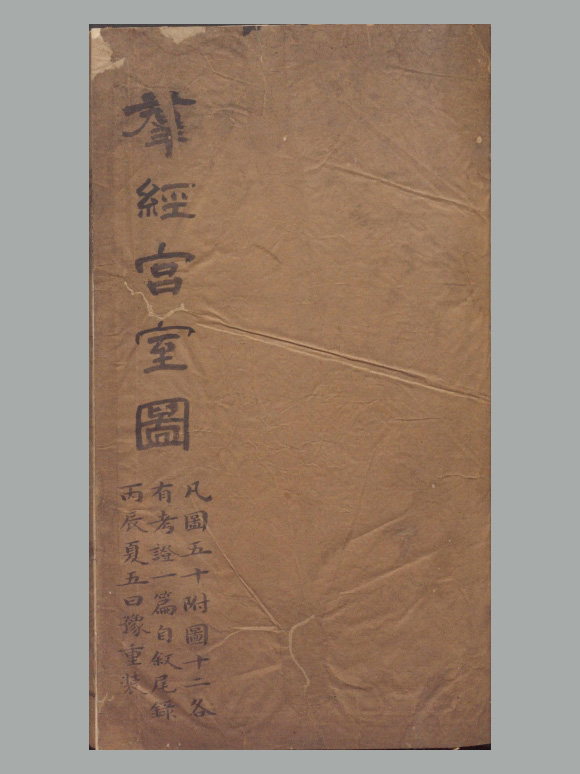 羣經宮室圖
凡圖五十附圖十二各
有考證一篇自敘尾錄
丙辰夏五曰豫重裝